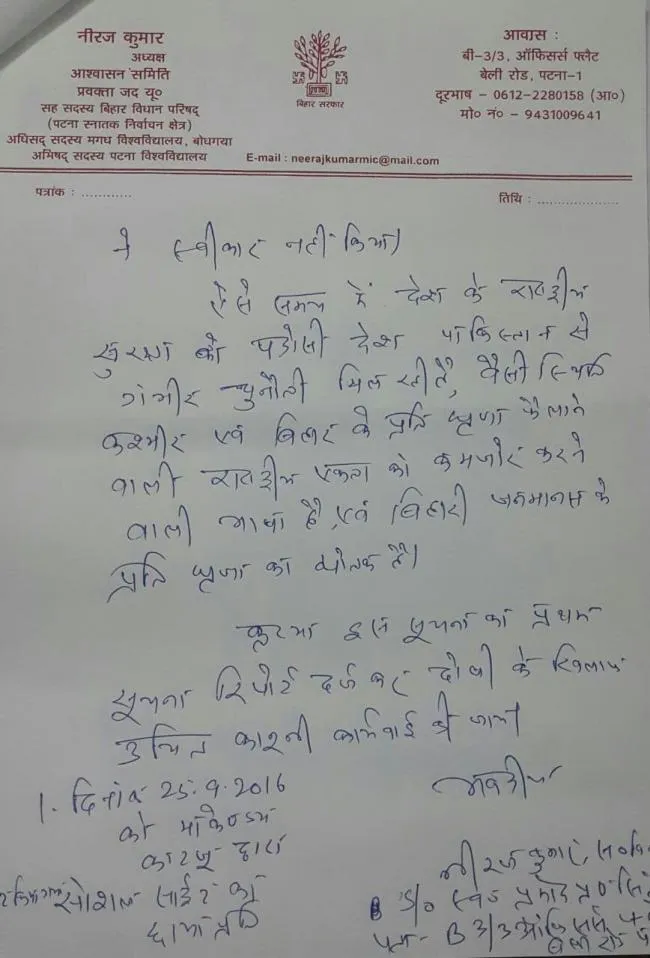 नीरज कुमार
अध्यक्ष
आश्वासन समिति
प्रवक्ता जद यू०
सह सदस्य बिहार विधान परिषद्
(पटना स्नातक निर्वाचन क्षेत्र)
अधिसद् सदस्य मगध विश्वविद्यालय, बोधगया
अभिषद् सदस्य पटना विश्वविद्यालय
बिहार सरकार
E-mail : neerajkumarmic@mail.com
आवास :
बी-3/3, ऑफिसर्स फ्लैट
बेली रोड, पटना-1
दूरभाष - 0612-2280158 (आ०)
मो० नं० - 9431009641
पत्रांक : ............
तिथि : ....................
ने स्वीकार नहीं किया।
ऐसे समय में देश के राष्ट्रीय
सुरक्षा को पड़ोसी देश पाकिस्तान से
गंभीर चुनौती मिल रही है, वैसी स्थिति
कश्मीर एवं बिहार के प्रति घृणा फैलाने
वाली राष्ट्रीय एकता को कमजोर करने
वाली भाषा है, एवं बिहारी जनमानस के
प्रति घृणा का द्योतक है।
कृपया इस सूचना का प्रथम
सूचना रिपोर्ट दर्ज कर दोषी के खिलाफ
उचित कानूनी कार्यवाई की जाय।
भवदीय
1. दिनांक 25.9.2016
को मार्कण्डेय
काटजू द्वारा
सोशल साईट का
छाया प्रति
नीरज कुमार, स०वि
S/o स्व०
पता- B 3/3 ऑफिसर्स
बेली रोड